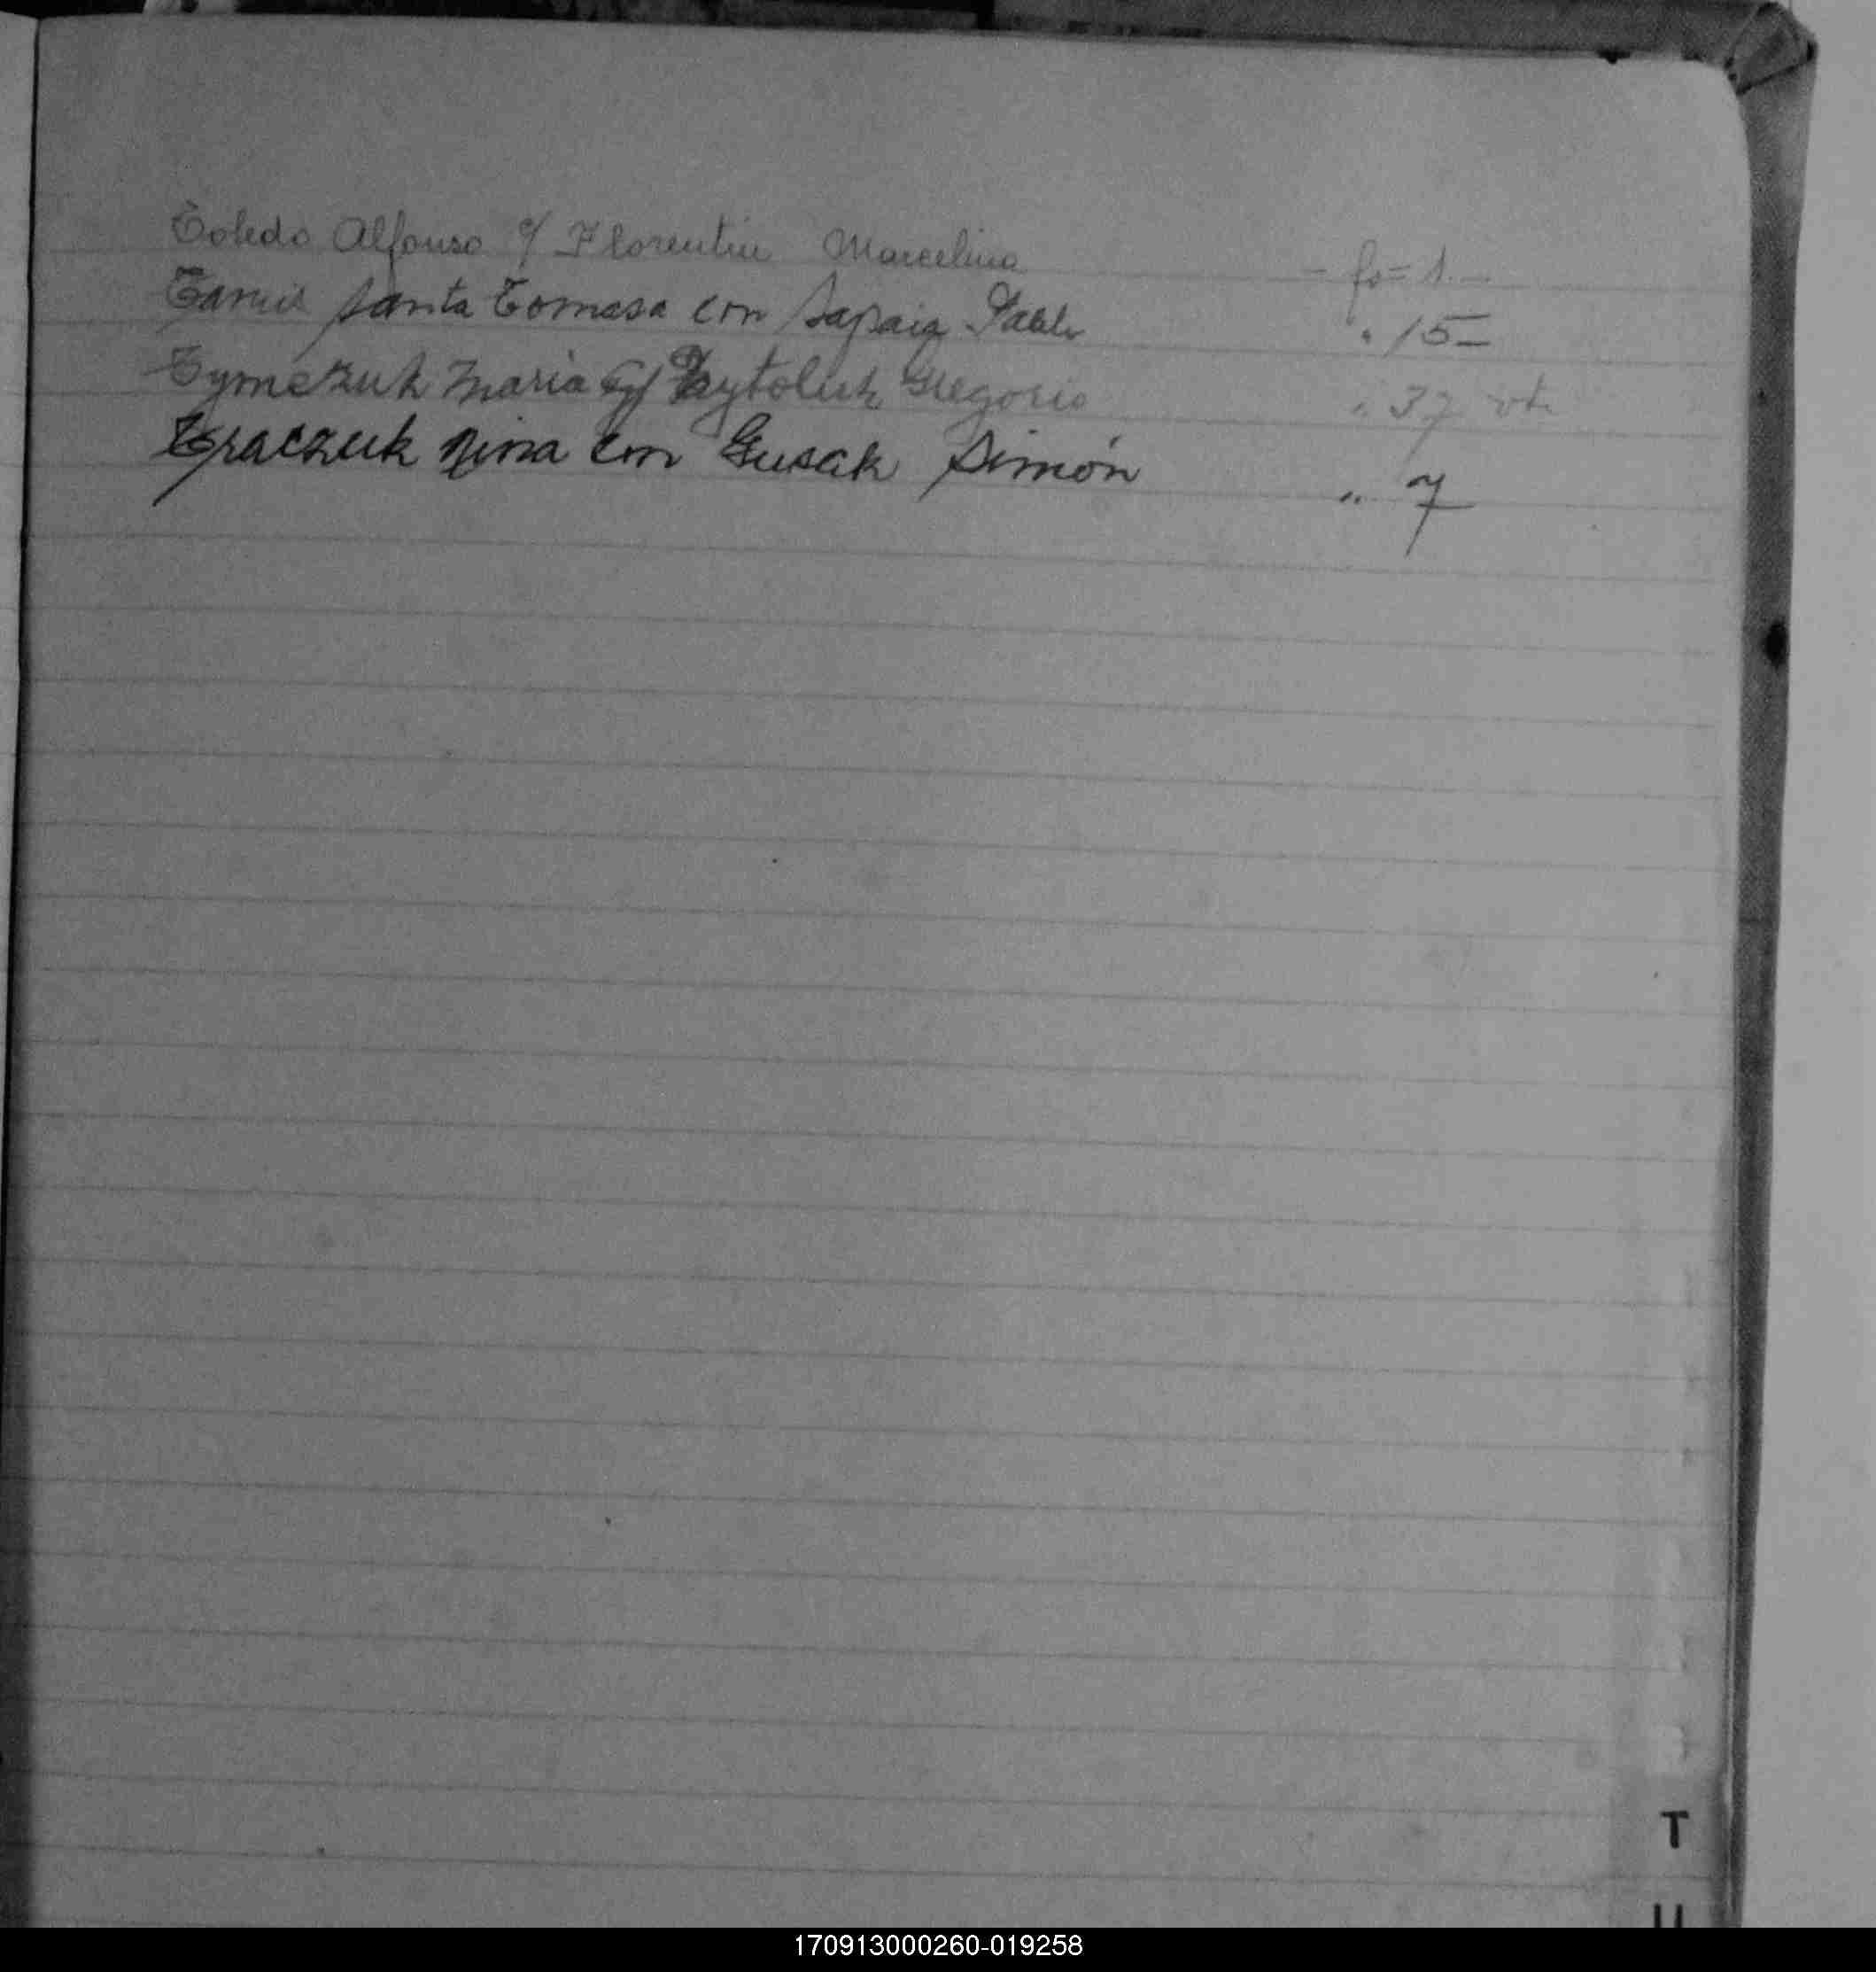 Toledo Alfonso c/ Florentin Marcelina - fo= 1.-
Santa Tomasa con Pablo " 15-
Tymczuk Maria c/ Gregorio " 37 vta
Traczuk Nina con Gusak Simón " 7
T
U
170913000260-019258